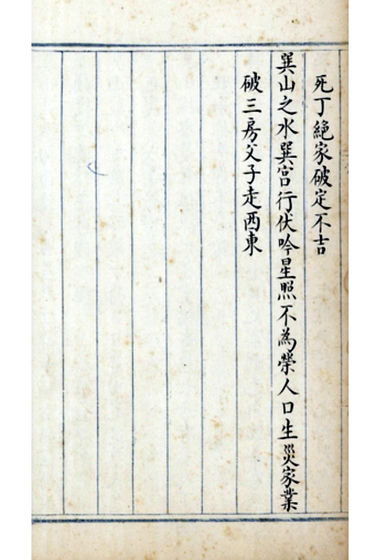 死丁絕家破定不吉
巽山之水巽宮行伏吟星照不為榮人口生災家業
破三房父子走西東